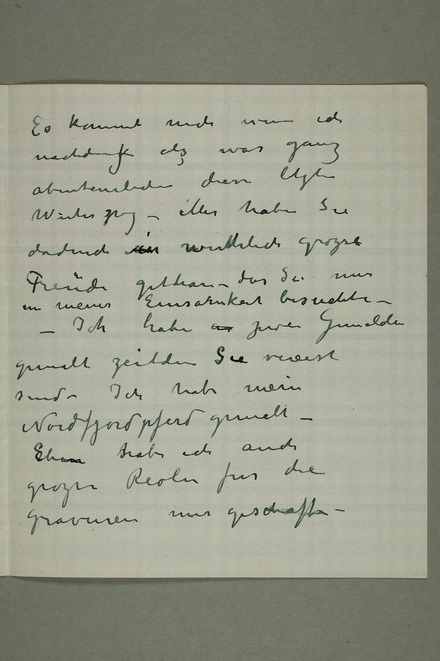 Es kommt mich wenn ich
nachdenke als was ganz
abenteuerliches diese
Winter – alles haben Sie
dadurch wirklich grozse
Freude gethan – das Sie mir
in meine Einsamkeit besuchte –
– Ich habe zwei Gemälde
gemalt zeitdem Sie vereist
sind – Ich habe mein
Nordfjordpferd gemalt –
Eben habe ich auch
grozse Reoler fur die
gravuren mir geschafft –